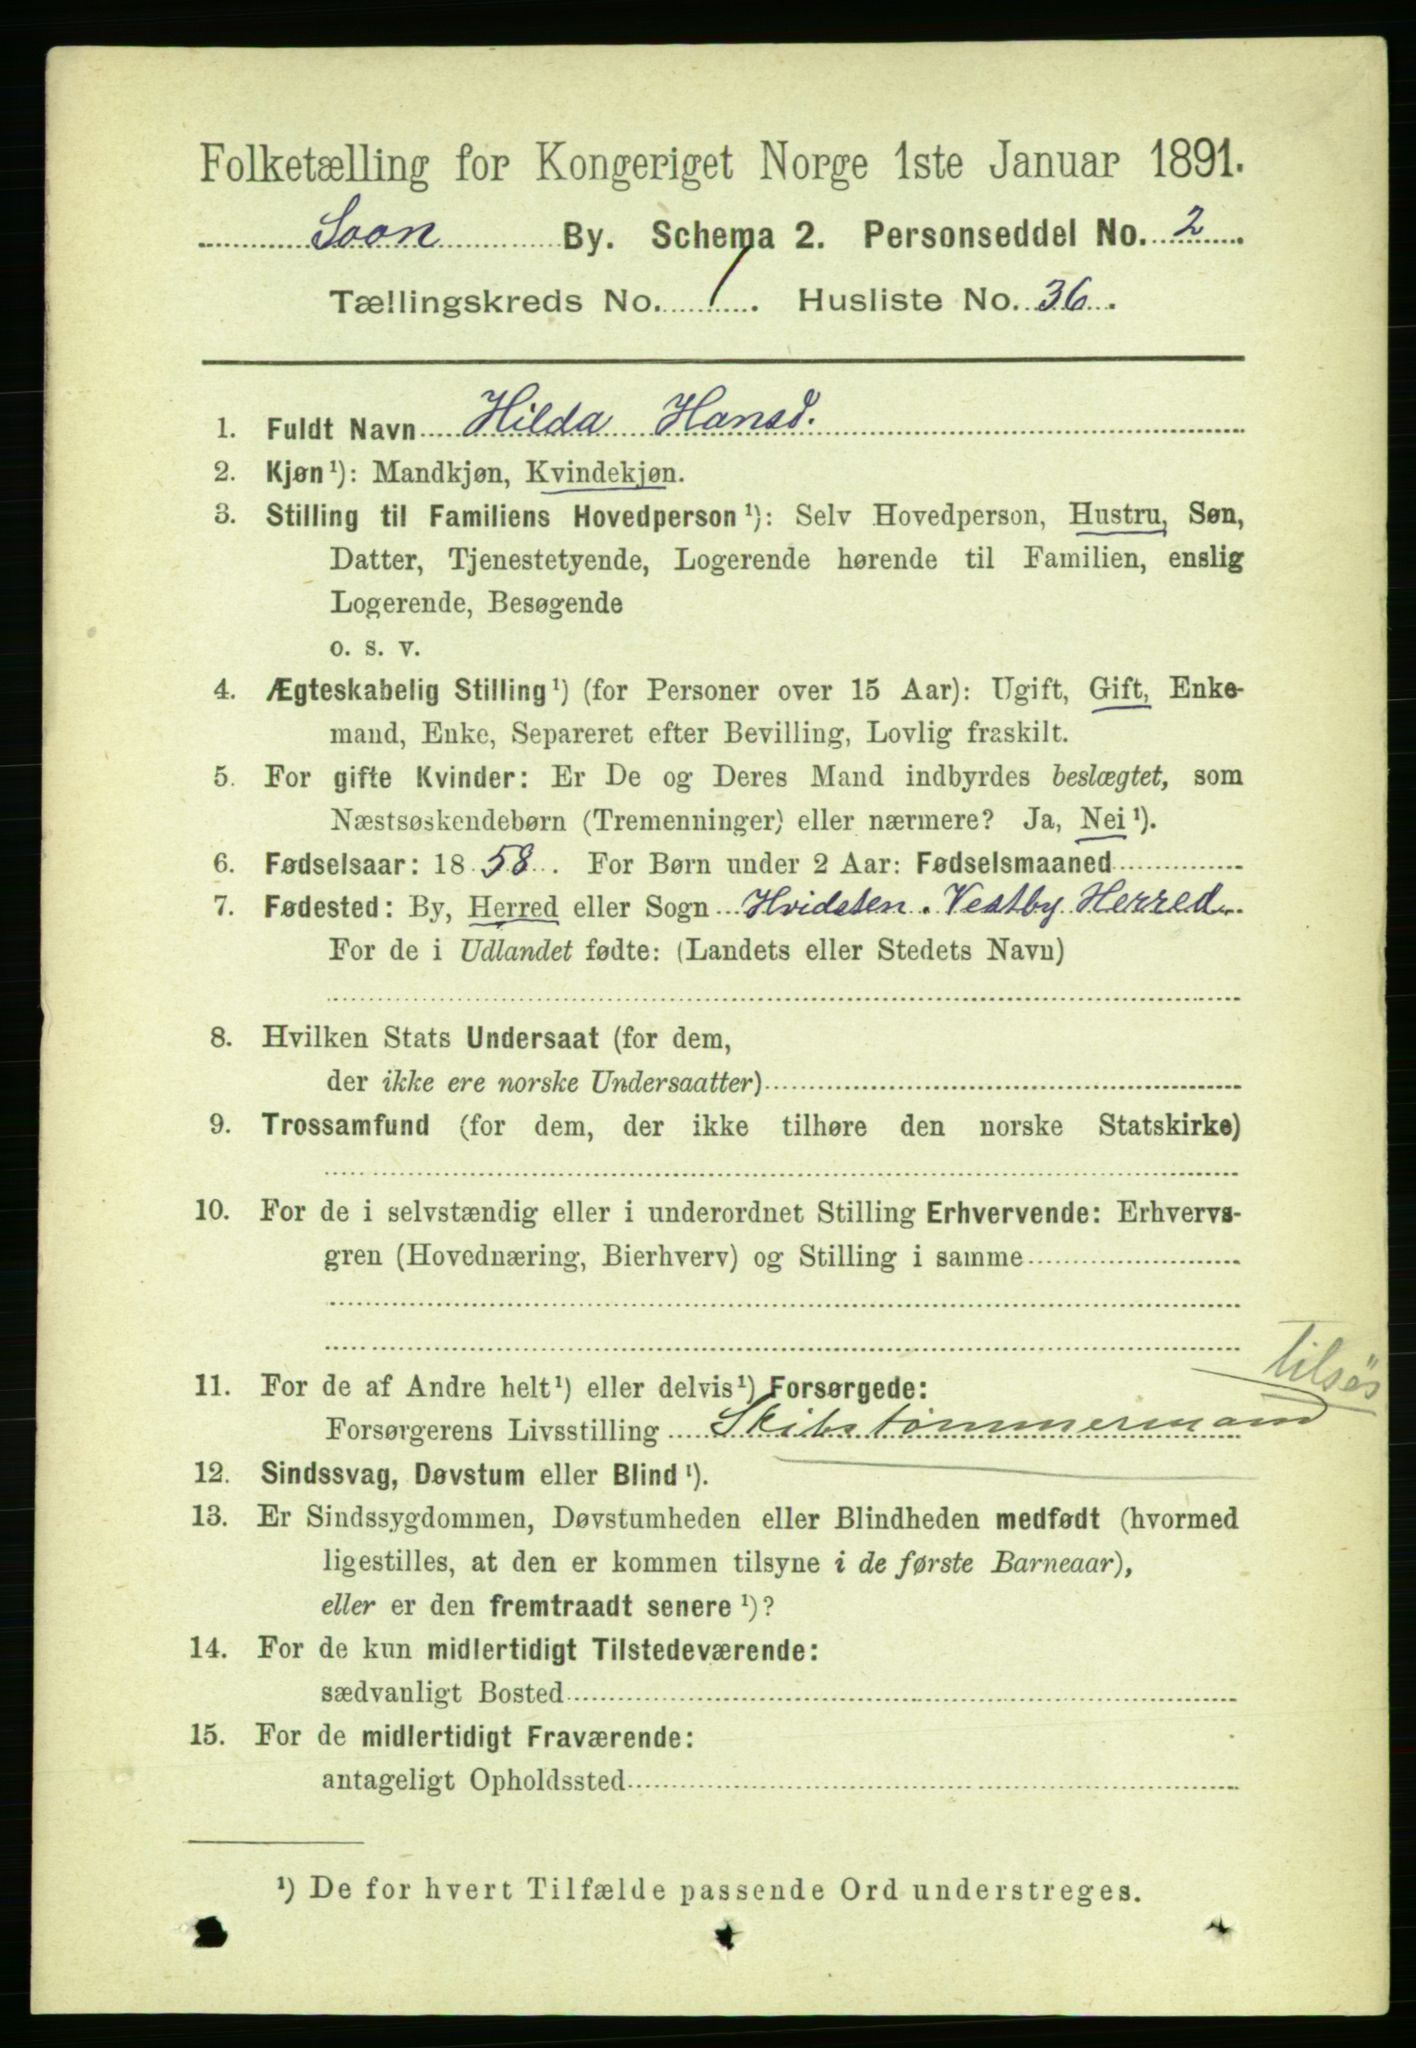 Folketælling for Kongeriget Norge 1ste Januar 1891.
Soon By. Schema 2. Personseddel No. 2
Tællingskreds No. 1. Husliste No. 36.
1. Fuldt Navn Hilda Hansd.
2. Kjøn ¹): Mandkjøn, Kvindekjøn.
3. Stilling til Familiens Hovedperson ¹): Selv Hovedperson, Hustru, Søn,
Datter, Tjenestetyende, Logerende hørende til Familien, enslig
Logerende, Besøgende
o. s. v.
4. Ægteskabelig Stilling ¹) (for Personer over 15 Aar): Ugift, Gift, Enke-
mand, Enke, Separeret efter Bevilling, Lovlig fraskilt.
5. For gifte Kvinder: Er De og Deres Mand indbyrdes beslægtet, som
Næstsøskendebørn (Tremenninger) eller nærmere? Ja, Nei ¹).
6. Fødselsaar: 18 58. For Børn under 2 Aar: Fødselsmaaned
7. Fødested: By, Herred eller Sogn Hvidsten. Vestby Herred
For de i Udlandet fødte: (Landets eller Stedets Navn)
8. Hvilken Stats Undersaat (for dem,
der ikke ere norske Undersaatter)
9. Trossamfund (for dem, der ikke tilhøre den norske Statskirke)
10. For de i selvstændig eller i underordnet Stilling Erhvervende: Erhvervs-
gren (Hovednæring, Bierhverv) og Stilling i samme
tilsøs
11. For de af Andre helt ¹) eller delvis ¹) Forsørgede:
Forsørgerens Livsstilling Skibstømmermand
12. Sindssvag, Døvstum eller Blind ¹).
13. Er Sindssygdommen, Døvstumheden eller Blindheden medfødt (hvormed
ligestilles, at den er kommen tilsyne i de første Barneaar),
eller er den fremtraadt senere ¹)?
14. For de kun midlertidigt Tilstedeværende:
sædvanligt Bosted
15. For de midlertidigt Fraværende:
antageligt Opholdssted
¹) De for hvert Tilfælde passende Ord understreges.